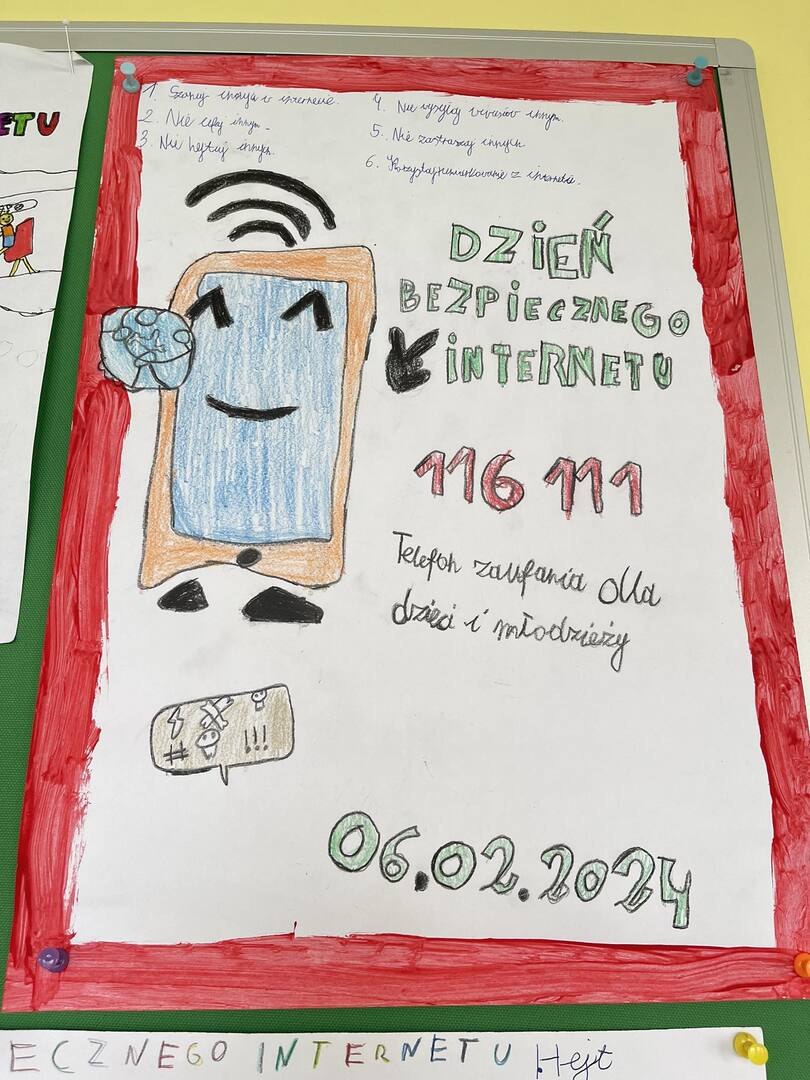 ETU
1. Szanuj innych w internecie.
4. Nie wysyłaj wirusów innym.
2. Nie innym.
5. Nie zastraszaj innych
3. Nie hejtuj innych.
6. z internetu.
DZIEŃ
BEZPIECZNEGO
INTERNETU
116 111
Telefon zaufania dla
dzieci i młodzieży
# !!!
06.02.2024
ECZNEGO INTERNETU Hejt